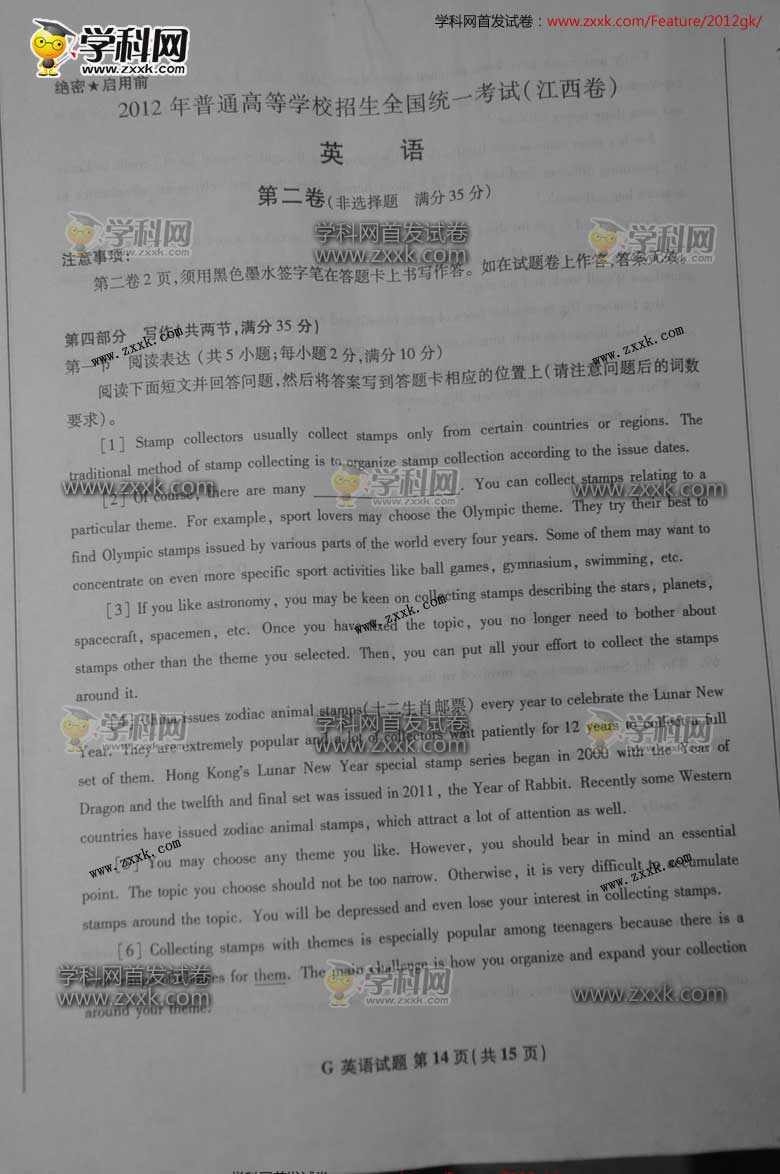 学科网首发试卷：www.zxxk.com/Feature/2012gk/
学科网
www.zxxk.com
绝密★启用前
2012年普通高等学校招生全国统一考试(江西卷)
英 语
第二卷(非选择题 满分35分)
学科网
www.zxxk.com
学科网首发试卷
www.zxxk.com
学科网
www.zxxk.com
注意事项：
第二卷2页,须用黑色墨水签字笔在答题卡上书写作答。如在试题卷上作答,答案无效。
第四部分 写作(共两节,满分35分)
www.zxxk.com
www.zxxk.com
第一节 阅读表达 (共5小题;每小题2分,满分10分)
阅读下面短文并回答问题,然后将答案写到答题卡相应的位置上(请注意问题后的词数
要求)。
[1] Stamp collectors usually collect stamps only from certain countries or regions. The
traditional method of stamp collecting is to organize stamp collection according to the issue dates.
www.zxxk.com
学科网
www.zxxk.com
www.zxxk.com
[2] Of course, there are many ________. You can collect stamps relating to a
particular theme. For example, sport lovers may choose the Olympic theme. They try their best to
find Olympic stamps issued by various parts of the world every four years. Some of them may want to
concentrate on even more specific sport activities like ball games, gymnasium, swimming, etc.
[3] If you like astronomy, you may be keen on collecting stamps describing the stars, planets,
www.zxxk.com
spacecraft, spacemen, etc. Once you have the topic, you no longer need to bother about
stamps other than the theme you selected. Then, you can put all your effort to collect the stamps
around it.
学科网
www.zxxk.com
学科网首发试卷
www.zxxk.com
学科网
www.zxxk.com
[4] China issues zodiac animal stamps(十二生肖邮票) every year to celebrate the Lunar New
Year. They are extremely popular and a lot of collectors wait patiently for 12 years to collect a full
set of them. Hong Kong's Lunar New Year special stamp series began in 2000 with the Year of
Dragon and the twelfth and final set was issued in 2011, the Year of Rabbit. Recently some Western
countries have issued zodiac animal stamps, which attract a lot of attention as well.
www.zxxk.com
www.zxxk.com
[5] You may choose any theme you like. However, you should bear in mind an essential
point. The topic you choose should not be too narrow. Otherwise, it is very difficult to accumulate
stamps around the topic. You will be depressed and even lose your interest in collecting stamps.
[6] Collecting stamps with themes is especially popular among teenagers because there is a
for them. The main challenge is how you organize and expand your collection
around your theme.
学科网首发试卷
www.zxxk.com
学科网
www.zxxk.com
www.zxxk.com
G 英语试题 第14页(共15页)